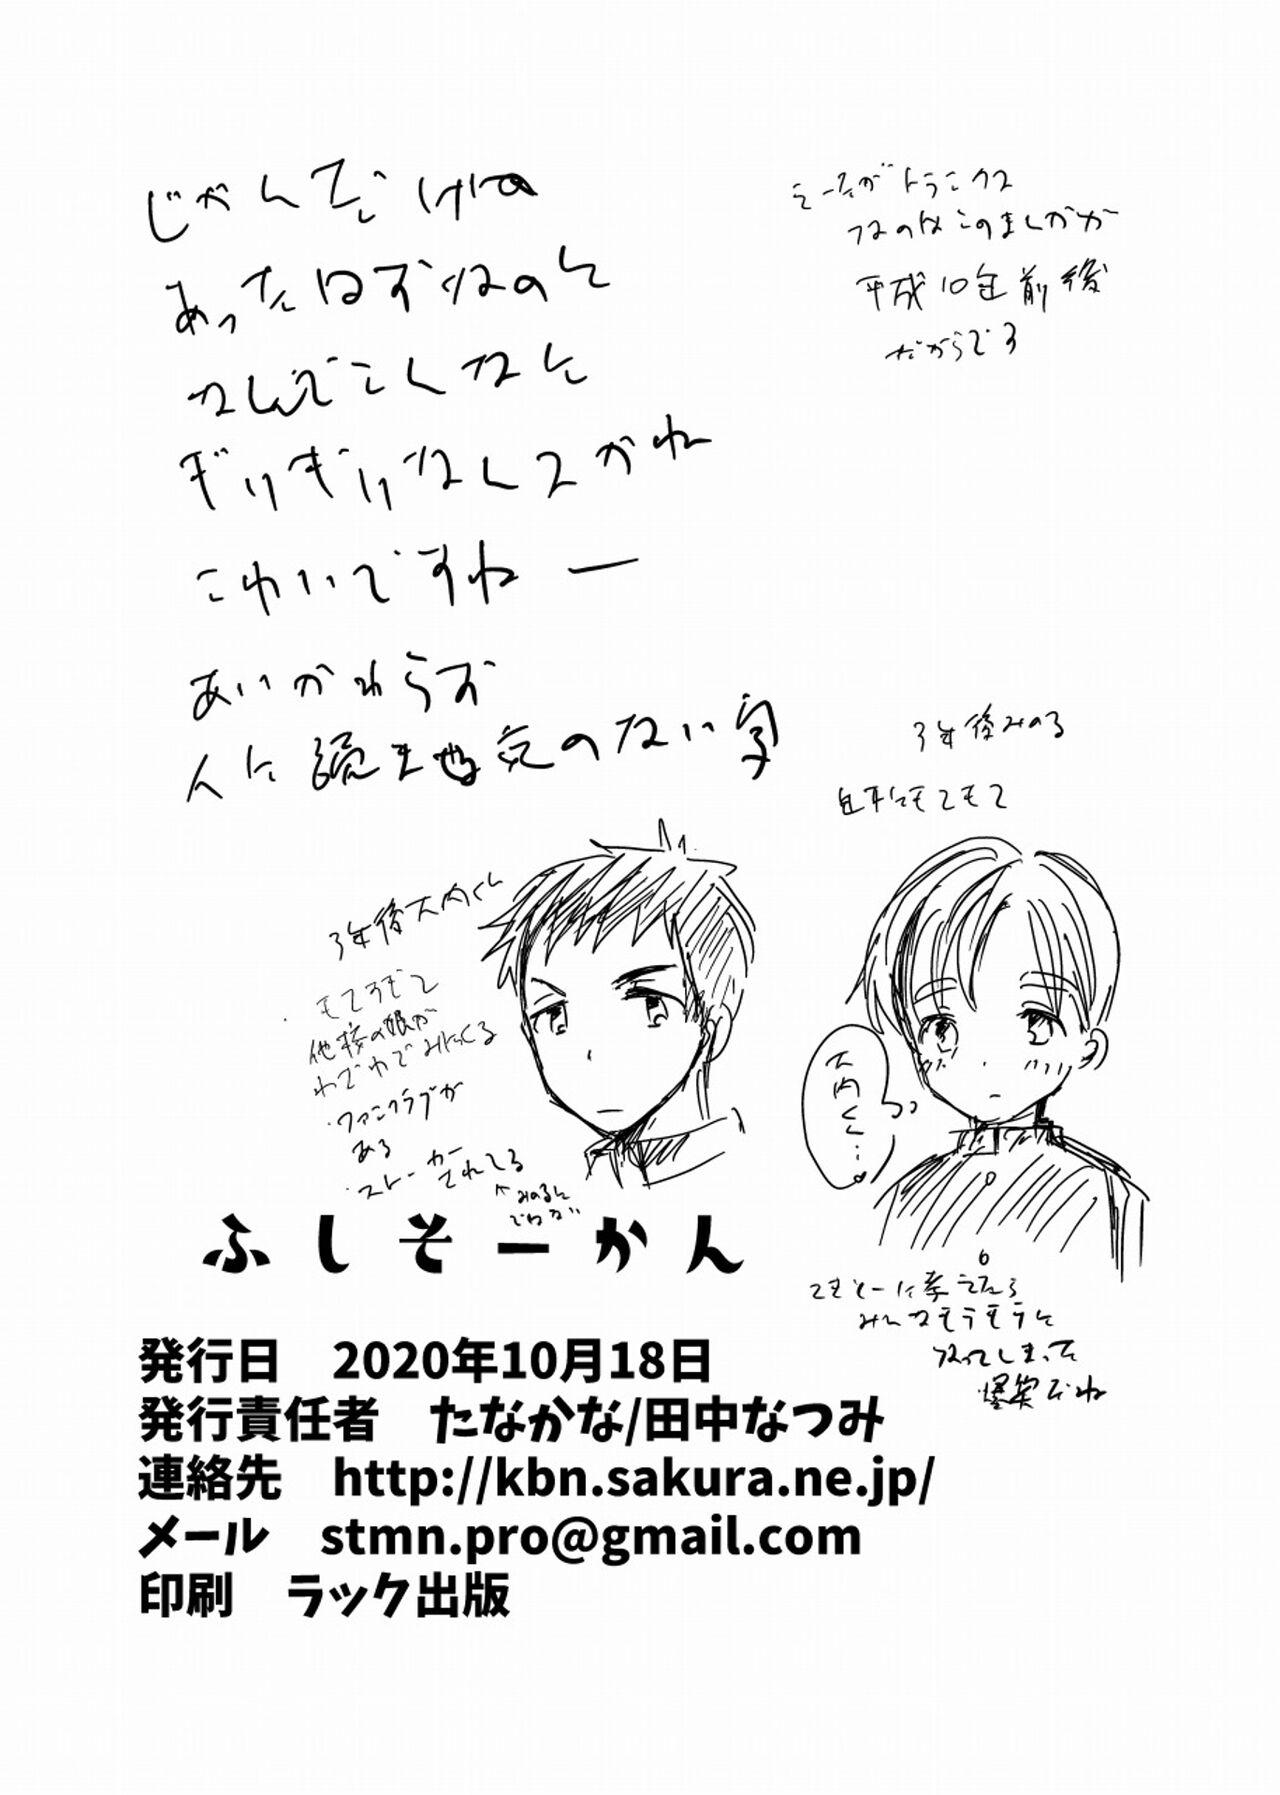 あったはずなのに
なんでこんなに
ぎりぎりなんスかね
こわいですねー
あいかわらず
人に読ませる気のない字
そーたがトランクス
なのはこのまんがが
平成10年前後
だからです
3年後みのる
3年後大内くん
他校の娘が
わざわざみにくる
・ファンクラブが
ある
・ストーカーされてる
↖みのるに
ではない
大内くん…♥
てきとーに考えたら
みんなモテモテに
なってしまった
爆笑だね
ふしそーかん
発行日 2020年10月18日
発行責任者 たなかな/田中なつみ
連絡先 http://kbn.sakura.ne.jp/
メール stmn.pro@gmail.com
印刷 ラック出版